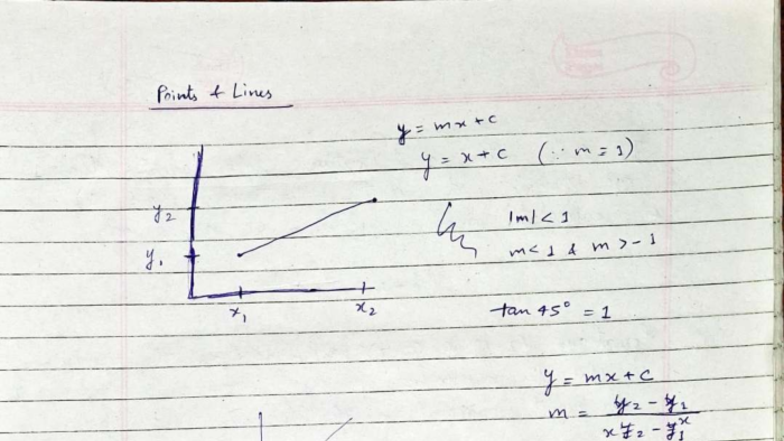 Points & Lines
y = mx + c
y = x + c (∵ m = 1)
y2
|m| < 1
y1
m < 1 & m > -1
x1
x2
tan 45° = 1
y = mx + c
m = y2 - y1
x2 - x1